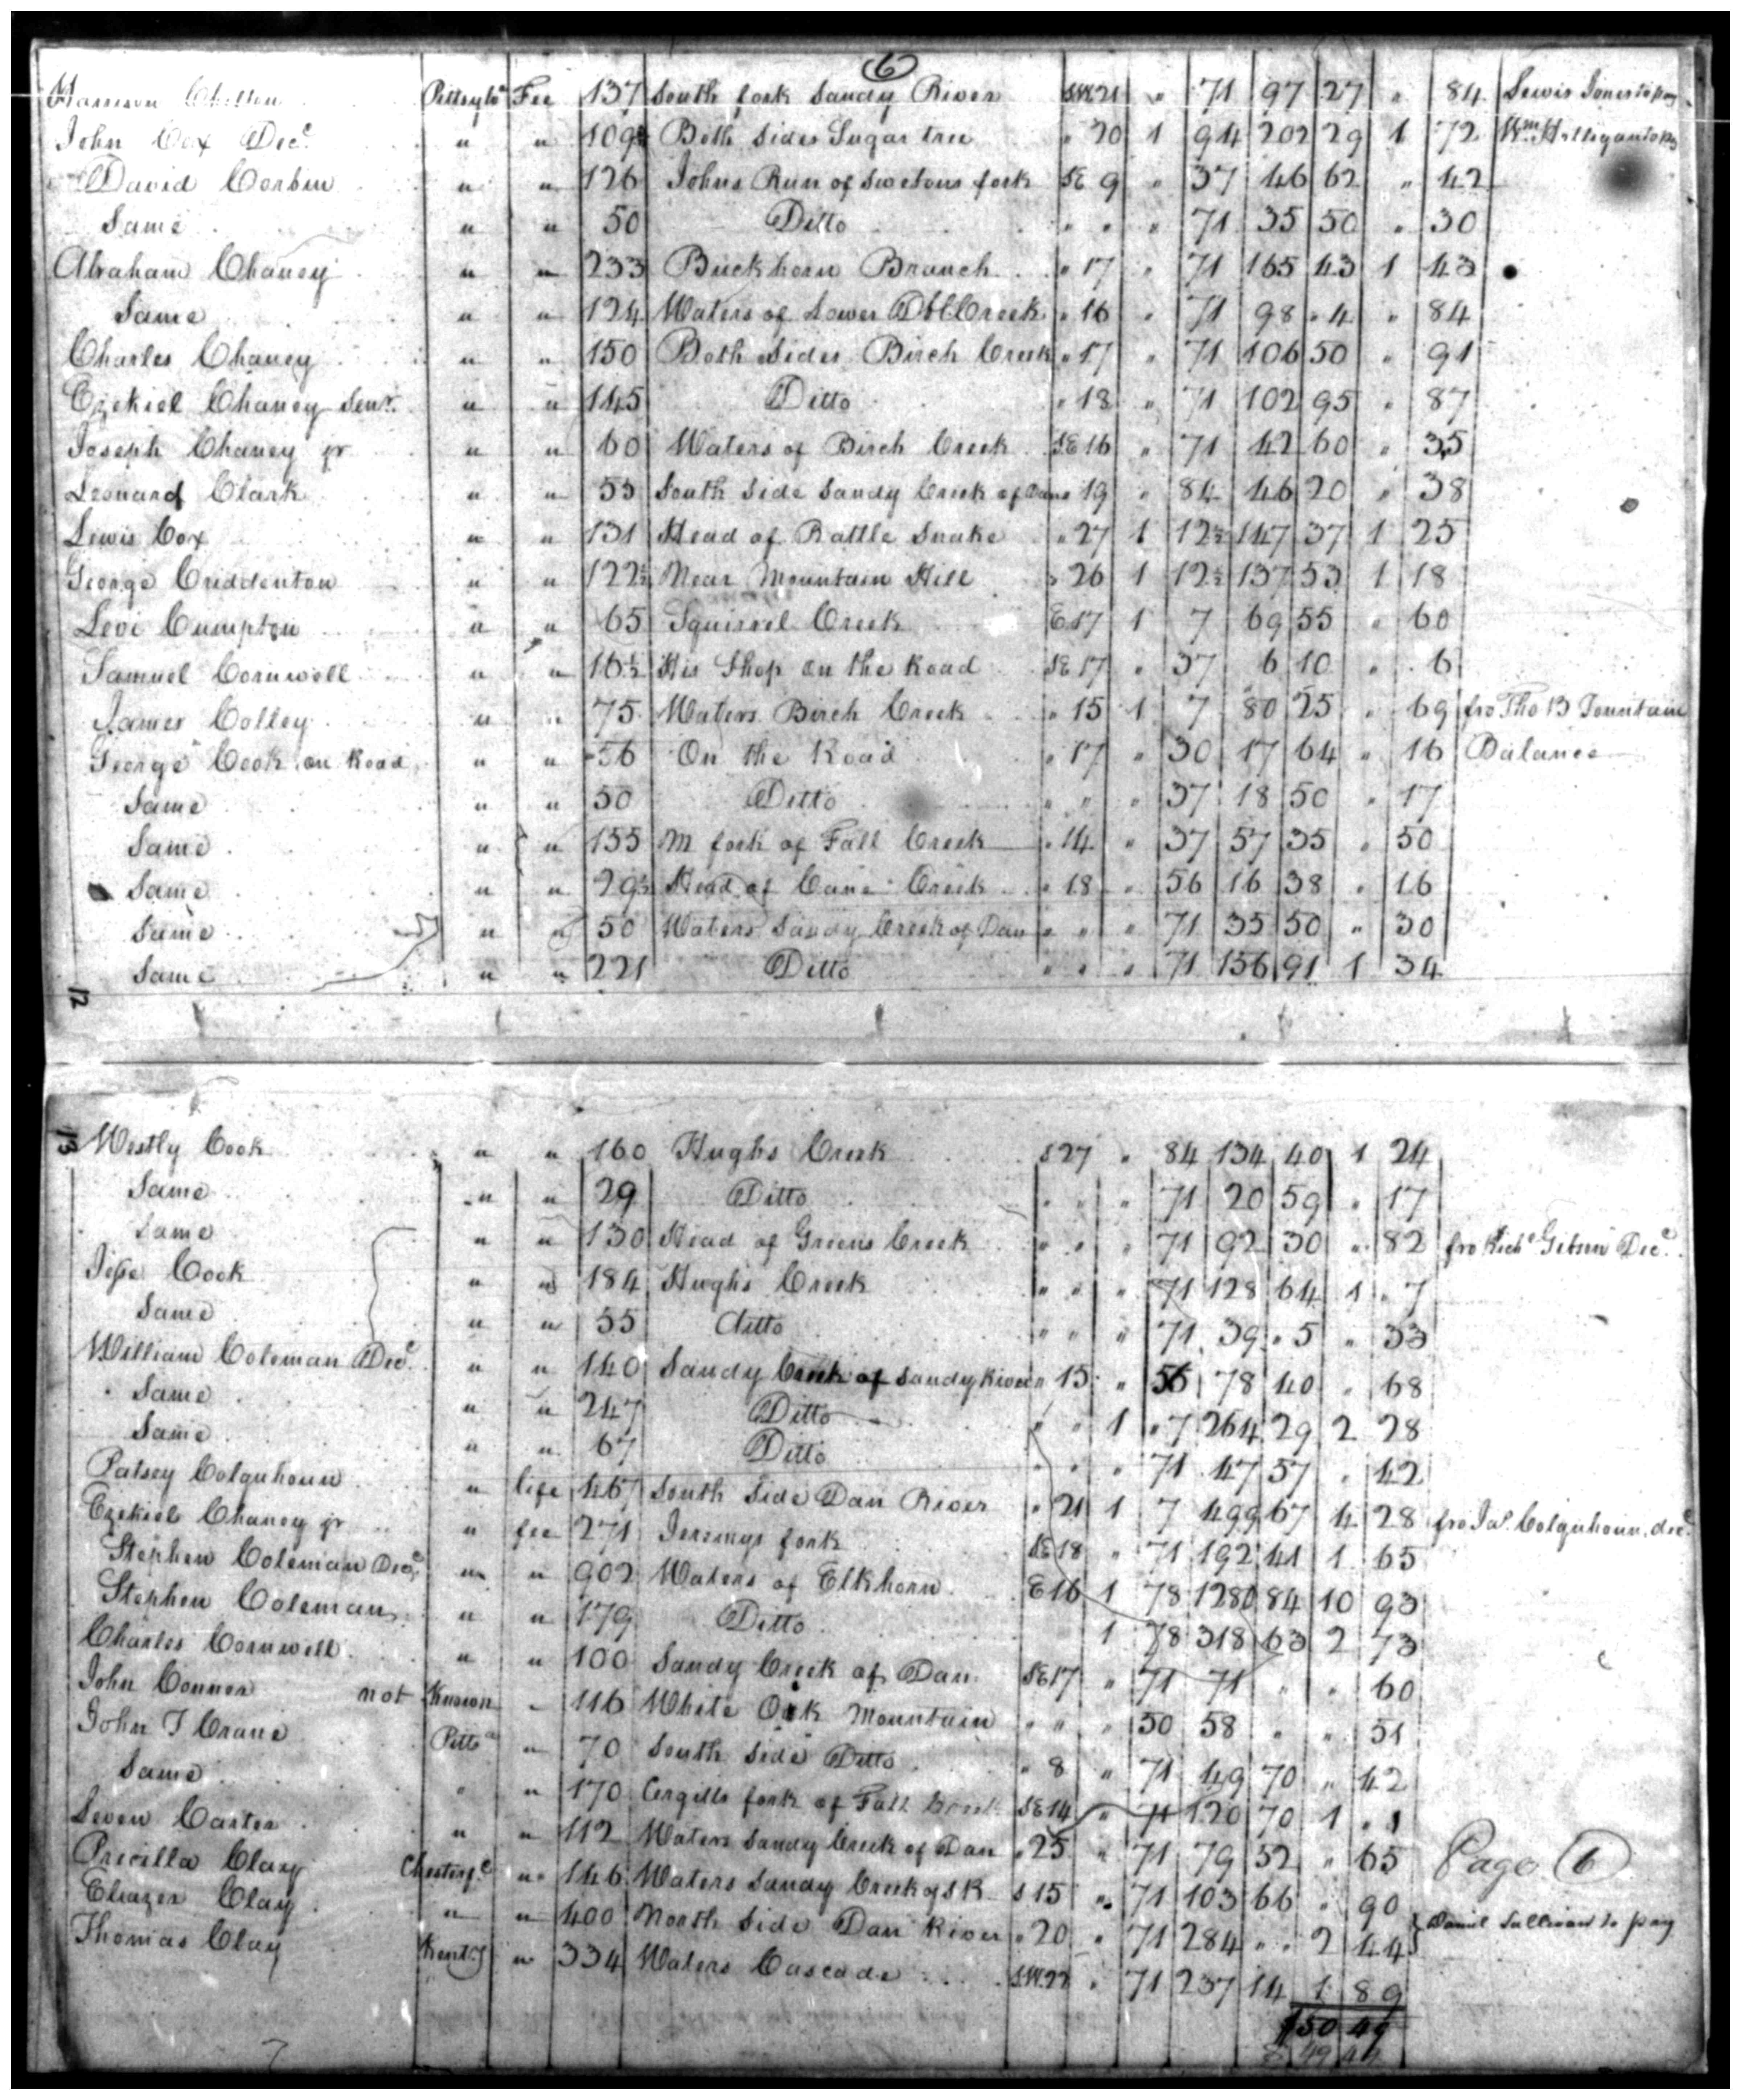 6
Harrison Pittsyla Fee 137 South fork Sandy River SW 21 " 71 97 27 " 84 Lewis Jones to pay
John Cox Decd " " 109 Both Sides Sugar tree " 20 1 94 202 29 1 72 Wm to pay
David Corbin " " 126 Johns Run of Swetons fork SE 9 " 37 46 62 " 42
Same " " 50 Ditto " " " 71 35 50 " 30
Abraham Chaney " " 233 Buckhorn Branch " 17 " 71 165 43 1 43
Same " " 124 Waters of Lower Dbl Creek " 16 " 71 98 " 4 " 84
Charles Chaney " " 150 Both Sides Birch Creek " 17 " 71 106 50 " 91
Ezekiel Chaney Senr " " 145 Ditto " 18 " 71 102 95 " 87
Joseph Chaney jr " " 60 Waters of Birch Creek SE 16 " 71 42 60 " 35
Leonard Clark " " 55 South Side Sandy Creek of Dan " 19 " 84 46 20 " 38
Lewis Cox " " 131 Head of Rattle Snake " 27 1 12½ 147 37 1 25
George Criddenton " " 122½ Near Mountain Hill " 26 1 12½ 137 53 1 18
Levi Cumpton " " 65 Squirrel Creek E 17 1 7 69 55 " 60
Samuel Cornwell " " 16½ His Shop on the Road SE 17 " 37 6 10 " 6
James Colley " " 75 Waters Birch Creek " 15 1 7 80 25 " 69 fro Tho B Fountain
George Cook on Road " " 56 On the Road " 17 " 30 17 64 " 16 Balance
Same " " 50 Ditto " " " 37 18 50 " 17
Same " " 155 M fork of Fall Creek " 14 " 37 57 35 " 50
Same " " 29½ Head of Cane Creek " 18 " 56 16 38 " 16
Same " " 50 Waters Sandy Creek of Dan " " " 71 35 50 " 30
Same " " 221 Ditto " " " 71 156 91 1 34
12
13
Westly Cook " " 160 Hughs Creek S 27 " 84 134 40 1 24
Same " " 29 Ditto " " " 71 20 59 " 17
Same " " 130 Head of Greens Creek " " " 71 92 30 " 82 fro Richd Gibson Decd
Jesse Cook " " 184 Hughs Creek " " " 71 128 64 1 " 7
Same " " 55 ditto " " " 71 39 " 5 " 33
William Coleman Decd " " 140 Sandy Creek of Sandy River " 15 " 56 78 40 " 68
Same " " 247 Ditto " " 1 " 7 264 29 2 28
Same " " 67 Ditto " " " 71 47 57 " 42
Patsey Colquhoun " life 467 South Side Dan River " 21 1 7 499 67 4 28 fro Jas Colquhoun decd
Ezekiel Chaney jr " fee 271 Jeremys fork SE 18 " 71 192 41 1 65
Stephen Coleman Decd " " 902 Waters of Elkhorn E 16 1 78 1280 84 10 93
Stephen Coleman " " 179 Ditto 1 78 318 63 2 73
Charles Cornwell " " 100 Sandy Creek of Dan SE 17 " 71 71 " " 60
John Connor not Known " 116 White Oak Mountain " " " 50 58 " " 51
John T Crane Pitta " 70 South Side Ditto " 8 " 71 49 70 " 42
Same " " 170 Cergills fork of Fall Creek SE 14 " 71 120 70 1 " 1
Leven Carter " " 112 Waters Sandy Creek of Dan " 25 " 71 79 52 " 65 Page 6
Pricilla Clay Chesterfd " 146 Waters Sandy Creek of S R S 15 " 71 103 66 " 90
Eleazer Clay " " 400 North Side Dan River " 20 " 71 284 " " 2 44 } Daniel Sullivan to pay
Thomas Clay Kenty " 334 Waters Cascade SW 22 " 71 237 14 1 89
50 49